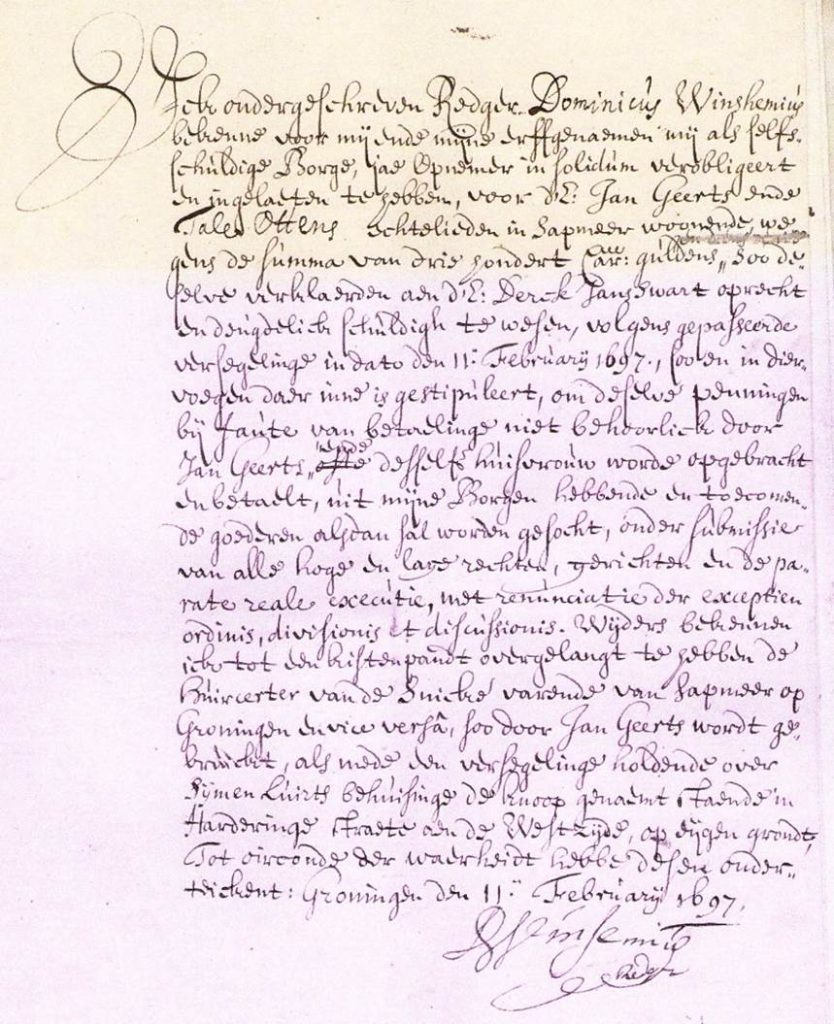 Ick ondergeschreven Redger Dominicus Winshemius
bekenne voor mij ende mijne erffgenaemen mij als selfs-
schuldige Borge, jae Opnemer in solidum verobligeert
en ingelaeten te hebben, voor d'E: Jan Geerts ende
Talet Ottens echtelieden in Sapmeer woonende, we-
gens de summa van drie hondert Car: guldens, soo de-
selve verklaerden aen d'E: Derck Jans Swart oprecht
en deugdelick schuldigh te wesen, volgens gepasseerde
versegelinge in dato den 11: February 1697., soo en in dier-
voegen daer inne is gestipuleert, om deselve penningen
bij faute van betaelinge niet behoorlick door
Jan Geerts ende desselfs huisvrouw worde opgebracht
en betaelt, uit mijne Borgen hebbende en toecomen-
de goederen alsdan sal worden gesocht, onder submissie
van alle hoge en lage rechten, gerichten en de pa-
rate reale executie, met renunciatie der exceptien
ordinis, divisionis et discussionis. Wijders bekennen
ick tot een kistenpandt overgelangt te hebben de
huircerter van de Snicke varende van Sapmeer op
Groningen en vice versâ, soo door Jan Geerts wordt ge-
bruickt, als mede een versegelinge holdende over
Sijmen Luirts behuisinge de Knoop genaemt staende in
Harderinge straete aen de Westzijde, op eijgen grondt,
Tot oirconde der waerheidt hebbe desen onder-
teickent: Groningen den 11: February 1697.
DWinsemius
Redger